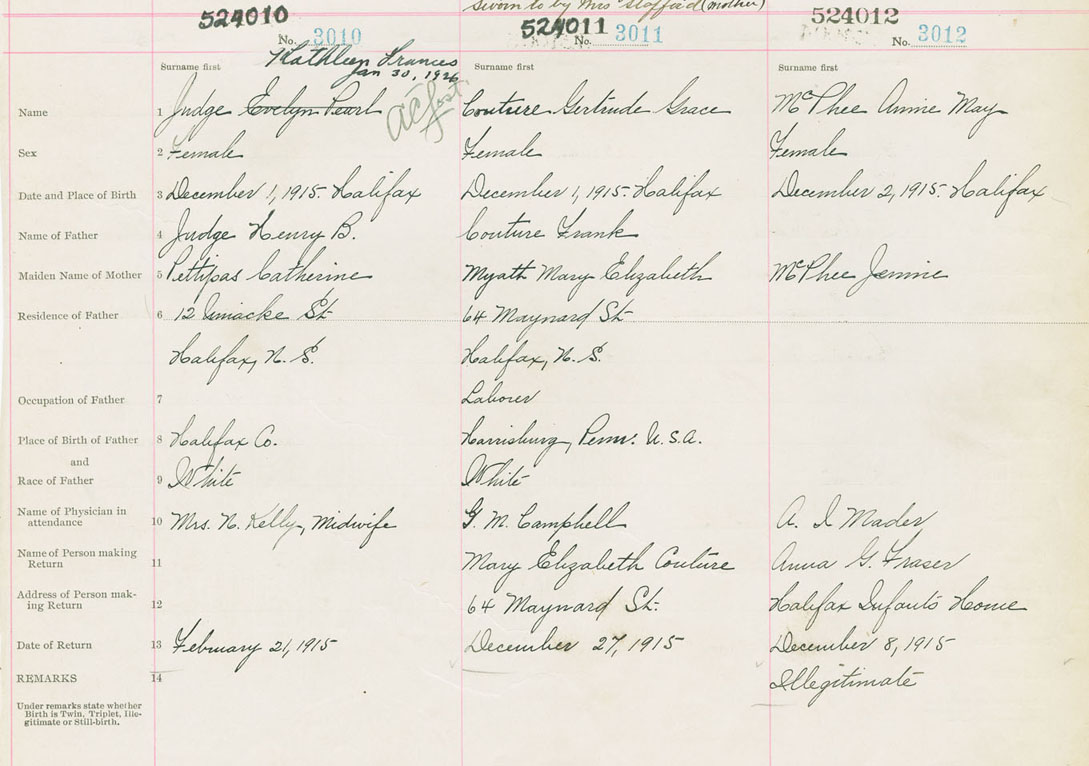 Sworn to by Mrs Stafford (mother)
524010 524011 524012
No. 3010 No. 3011 No. 3012
Kathleen Frances
Jan 30, 1926
Surname first Surname first Surname first
Name 1 Judge Evelyn Pearl Couture Gertrude Grace McPhee Annie May
Sex 2 Female Female Female
Date and Place of Birth 3 December 1, 1915- Halifax December 1, 1915- Halifax December 2, 1915- Halifax
Name of Father 4 Judge Henry B. Couture Frank
Maiden Name of Mother 5 Pettipas Catherine Myatt Mary Elizabeth McPhee Jennie
Residence of Father 6 12 Uniacke St- 64 Maynard St-
Halifax, N. S. Halifax, N. S.
Occupation of Father 7 Laborer
Place of Birth of Father 8 Halifax Co. Harrisburg, Penn. U.S.A.
and
Race of Father 9 White White
Name of Physician in
attendance 10 Mrs. N. Kelly, Midwife G. M. Campbell A. I Mader
Name of Person making
Return 11 Mary Elizabeth Couture Anna G. Fraser
Address of Person mak-
ing Return 12 64 Maynard St- Halifax Infants Home
Date of Return 13 February 21, 1915 December 27, 1915 December 8, 1915
REMARKS 14 Illegitimate
Under remarks state whether
Birth is Twin, Triplet, Ille-
gitimate or Still-birth.